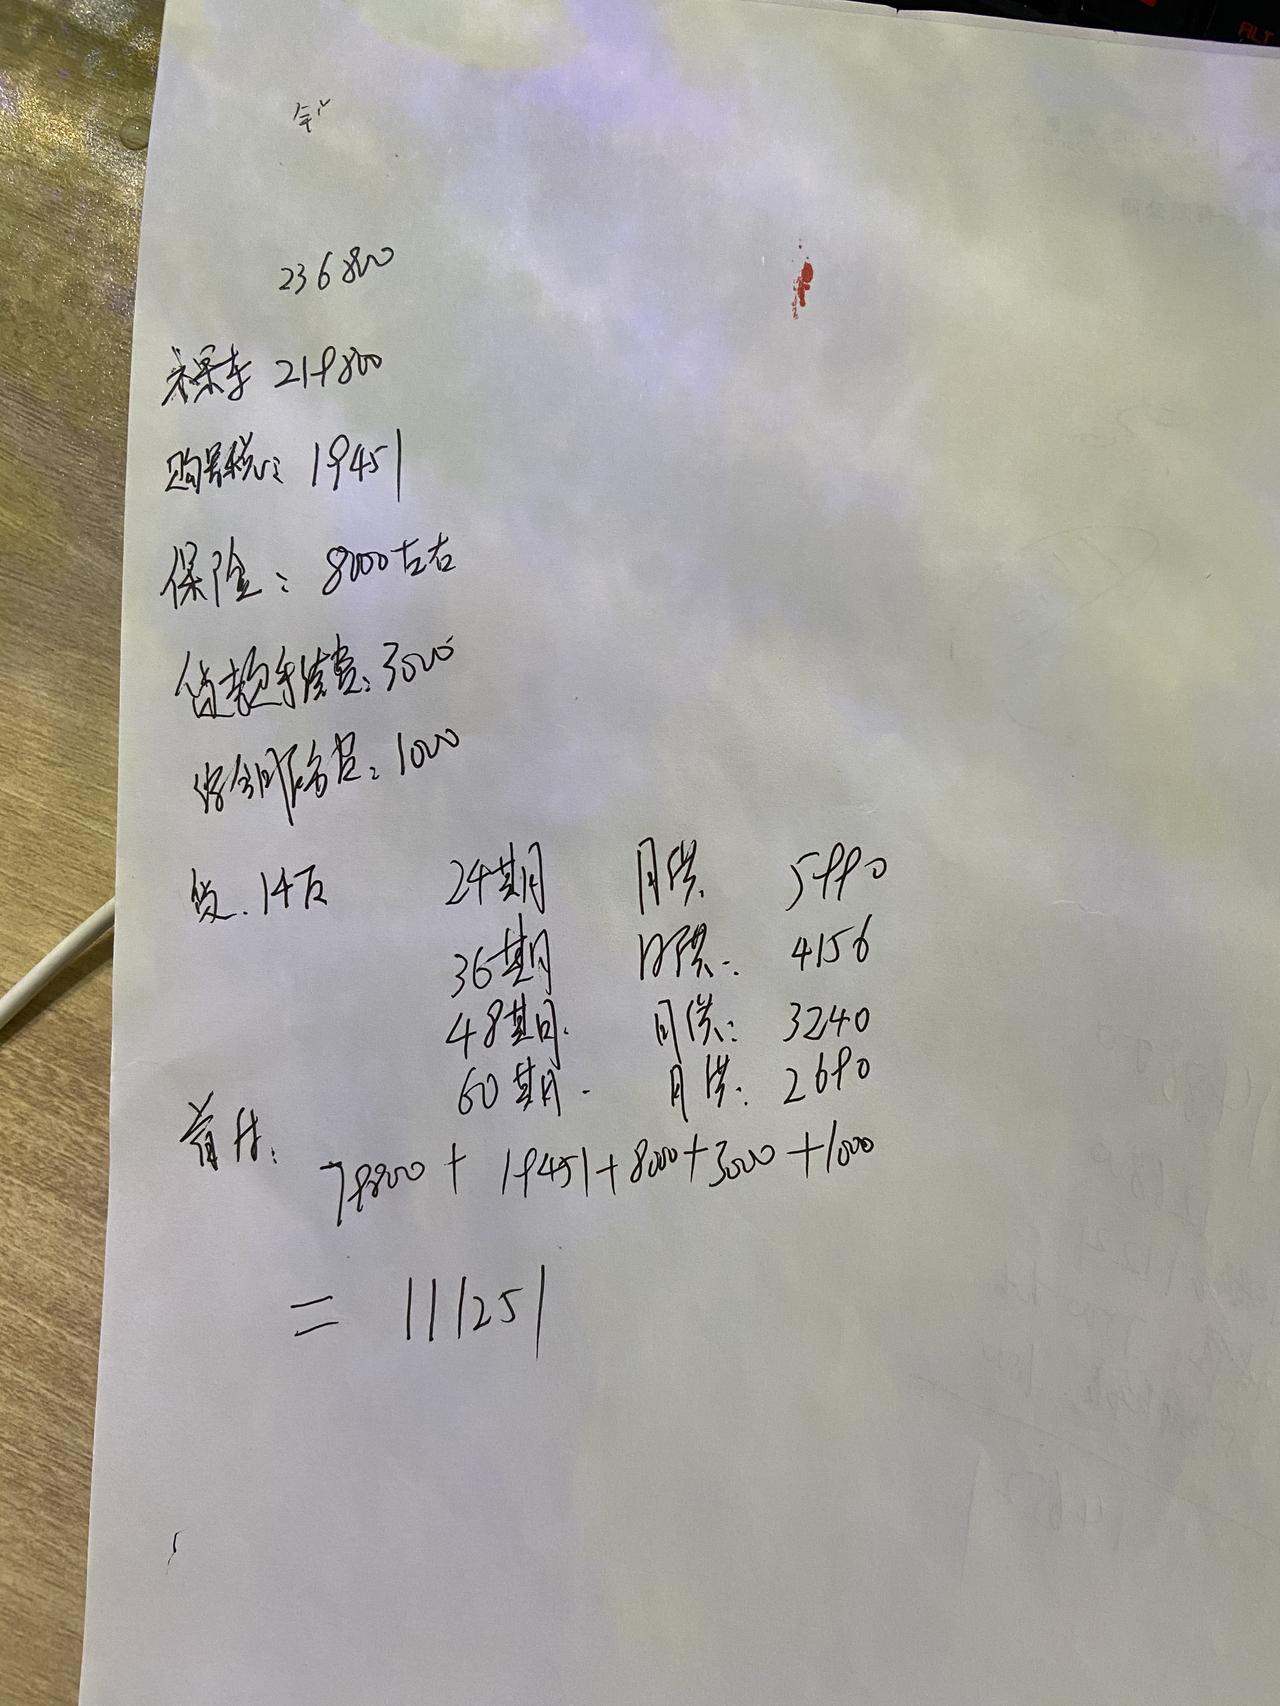 236800
裸车 219800
购置税: 19451
保险: 8000左右
贷款手续费: 3000
综合服务费: 1000
贷. 14万 24期 月供 5990
36期 月供: 4156
48期. 月供: 3240
60期. 月供: 2690
首付: 79800 + 19451+8000+3000+1000
= 111251